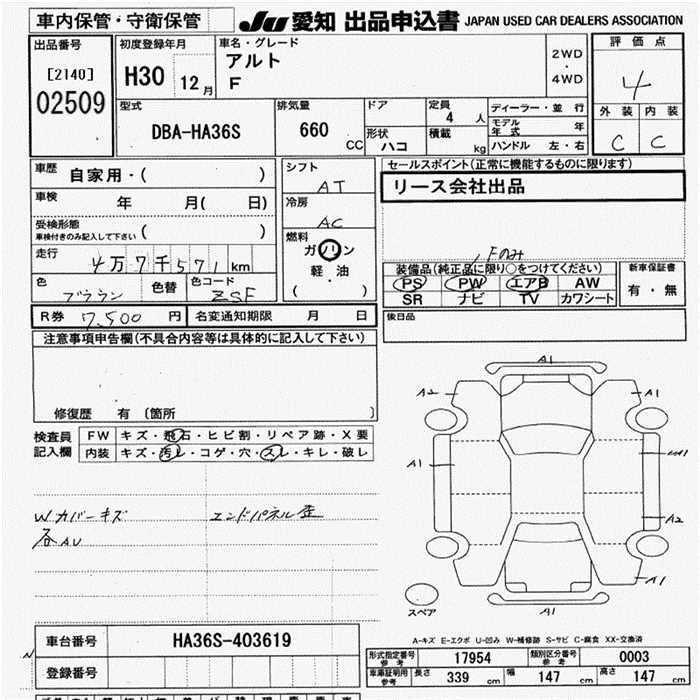 車内保管・守衛保管
JU 愛知 出品申込書 JAPAN USED CAR DEALERS ASSOCIATION
出品番号 [2140] 02509
初度登録年月 H30 12月
車名・グレード アルト F
2WD・4WD
評価点 4
外装 内装
C C
型式 DBA-HA36S
排気量 660 CC
ドア
形状 ハコ
定員 4 人
積載 kg
ディーラー・並行
モデル年式 年
ハンドル 左・右
車歴 自家用・( )
車検 年 月( 日)
受検形態 車検付きのみ記入して下さい ( )
走行 4万7千571 km
色 ブラウン 色替 色コード ZSF
シフト AT
冷房 AC
燃料 ガソリン 軽油 ( )
セールスポイント(正常に機能するものに限ります)
リース会社出品
Fのみ
装備品(純正品に限り○をつけてください)
PS PW エアB AW
SR ナビ TV カワシート
新車保証書 有・無
R券 7,500 円 名変通知期限 月 日
後日品
注意事項申告欄(不具合内容等は具体的に記入して下さい)
修復歴 有 〔箇所 〕
検査員記入欄
FW キズ・飛石・ヒビ割・リペア跡・X要
内装 キズ・汚レ・コゲ・穴・スレ・キレ・破レ
Wカバーキズ
各AU
エンドパネル歪
A1
A2 A1
A1
A2
A1
A1
スペア
A-キズ E-エクボ U-凹み W-補修跡 S-サビ C-腐食 XX-交換済
車台番号 HA36S-403619
登録番号
形式指定番号 参考 17954
類別区分番号 参考 0003
車庫証明用 参考 長さ 339 cm 幅 147 cm 高さ 147 cm